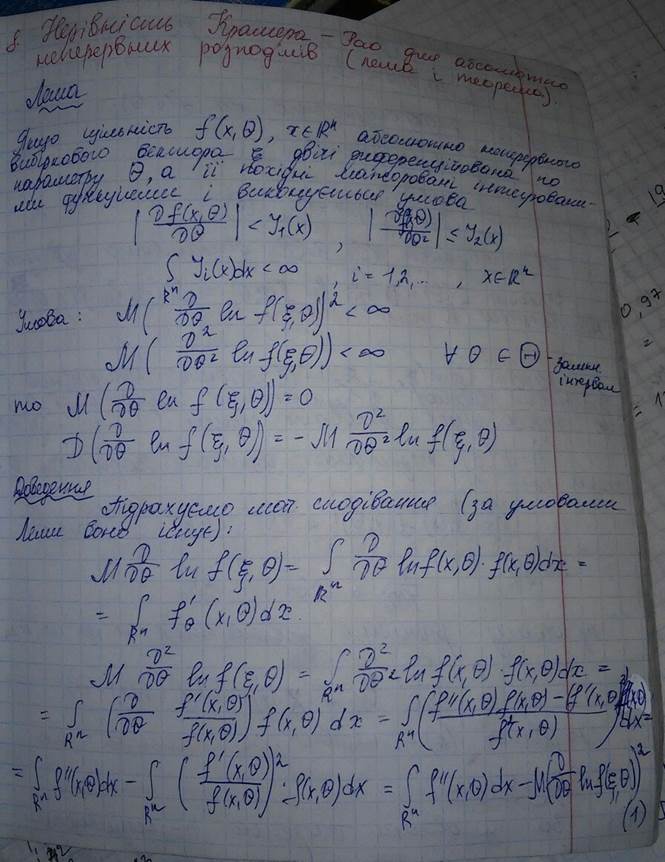 8. Нерівність Крамера – Рао для абсолютно
неперервних розподілів (лема і теорема).
Лема
Якщо щільність f(x,θ), x∈ℝⁿ абсолютно неперервного
вибіркового вектора ξ двічі диференційована по
параметру θ, а її похідні мажоровані інтегровани-
ми функціями і виконується умова
|∂f(x,θ)/∂θ| < Y₁(x), |∂²f(x,θ)/∂θ²| ≤ Y₂(x)
∫_{ℝⁿ} Yᵢ(x)dx < ∞, i = 1,2,..., x∈ℝⁿ
Умова: M(∂/∂θ ln f(ξ,θ))² < ∞
M(∂²/∂θ² ln f(ξ,θ)) < ∞ ∀ θ ∈ Θ -
інтервал
то M(∂/∂θ ln f(ξ,θ)) = 0
D(∂/∂θ ln f(ξ,θ)) = - M ∂²/∂θ² ln f(ξ,θ)
Доведення
Підрахуємо мат. сподівання (за умовами
Леми воно існує):
M ∂/∂θ ln f(ξ,θ) = ∫_{ℝⁿ} ∂/∂θ ln f(x,θ)·f(x,θ)dx =
= ∫_{ℝⁿ} f'_θ(x,θ)dx.
M ∂²/∂θ² ln f(ξ,θ) = ∫_{ℝⁿ} ∂²/∂θ² ln f(x,θ)·f(x,θ)dx =
= ∫_{ℝⁿ} (∂/∂θ f'(x,θ)/f(x,θ)) f(x,θ) dx = ∫_{ℝⁿ} (f''(x,θ) f(x,θ) - (f'(x,θ))²/f²(x,θ)) f(x,θ) dx =
= ∫_{ℝⁿ} f''(x,θ)dx - ∫_{ℝⁿ} (f'(x,θ)/f(x,θ))²·f(x,θ)dx = ∫_{ℝⁿ} f''(x,θ)dx - M(∂/∂θ ln f(ξ,θ))²
(1)
0,97